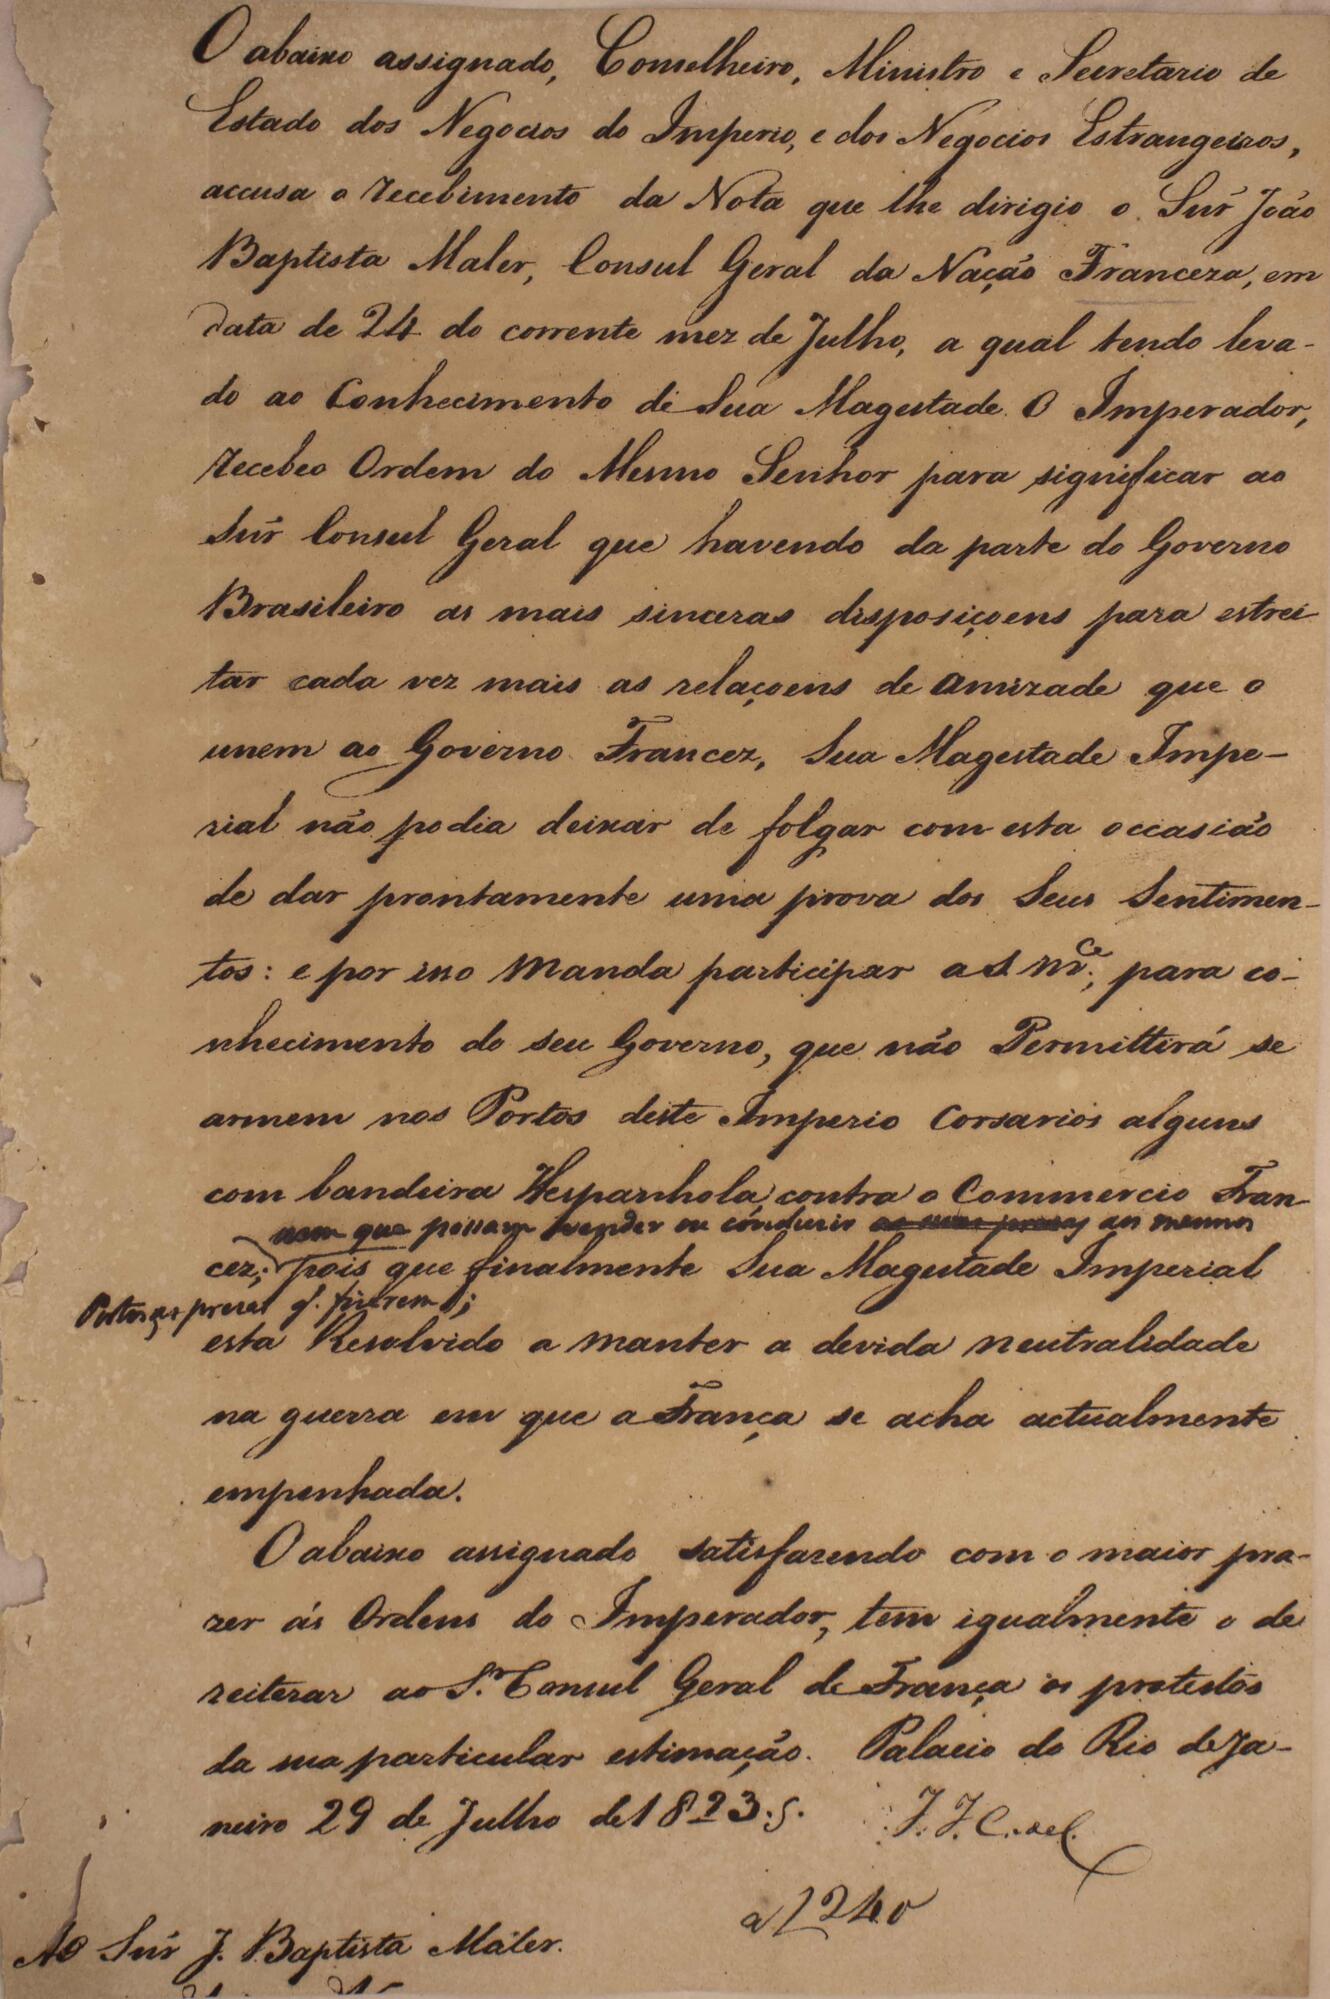 O abaixo assignado, Conselheiro, Ministro e Secretario de
Estado dos Negocios do Imperio, e dos Negocios Estrangeiros,
accusa o recebimento da Nota que lhe dirigio o Snr João
Baptista Maler, Consul Geral da Nação Franceza, em
data de 24 do corrente mez de Julho, a qual tendo leva-
do ao Conhecimento de Sua Magestade O Imperador,
recebeo Ordem do Mesmo Senhor para significar ao
Snr Consul Geral que havendo da parte do Governo
Brasileiro as mais sinceras disposiçoens para estrei-
tar cada vez mais as relaçoens de amizade que o
unem ao Governo Francez, Sua Magestade Impe-
rial não podia deixar de folgar com esta occasião
de dar prontamente uma prova dos Seus Sentimen-
tos: e por isso Manda participar a S. M.ce, para co-
nhecimento do seu Governo, que não Permittirá se
armem nos Portos deste Imperio Corsarios alguns
com bandeira Hespanhola, contra o Commercio Fran-
nem que possam vender ou conduzir as suas prezas aos mesmos
cez; pois que finalmente Sua Magestade Imperial
Portos as prezas q. fizerem;
esta Resolvido a manter a devida neutralidade
na guerra em que a França se acha actualmente
empenhada.
O abaixo assignado satisfazendo com o maior pra-
zer ás Ordens do Imperador, tem igualmente o de
reiterar ao S.r Consul Geral de França os protestos
da sua particular estimação. Palacio do Rio de Ja-
neiro 29 de Julho de 1823.
Ao Snr J. Baptista Maler.